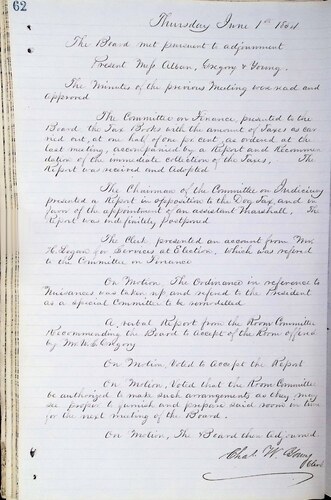 62
Thursday June 1st 1864
The Board met pursuant to adjournment
Present Mess Gregory & Young.
The Minutes of the previous Meeting were read and
approved
The Committee on Finance, presented to the
Board the Tax Books with the amount of Taxes as car
ried out, at one half of one per cent, as ordered at the
last meeting, accompanied by a Report and Recommen
dation of the immediate collection of the Taxes. The
Report was received and Adopted
The Chairman of the Committee on Judiciary
presented a Report in opposition to the Dog Tax, and in
favor of the appointment of an assistant Marshall. The
Report was indefinitely Postponed
The Clerk presented an account from
for Services at Election, which was referred
to the Committee on Finance
On Motion, The Ordinance in reference to
Nuisances was taken up and referred to the President
as a special Committee to be remodelled
A verbal Report from the Room Committee
Recommending the Board to Accept of the Room offered
by Mr Gregory
On Motion Voted to Accept the Report
On Motion, Voted that the Room Committee
be authorized to make such arrangements as they may
see proper to furnish and prepare said room in time
for the next meeting of the Board.
On Motion, The Board then adjourned
Chas. W.
Clerk